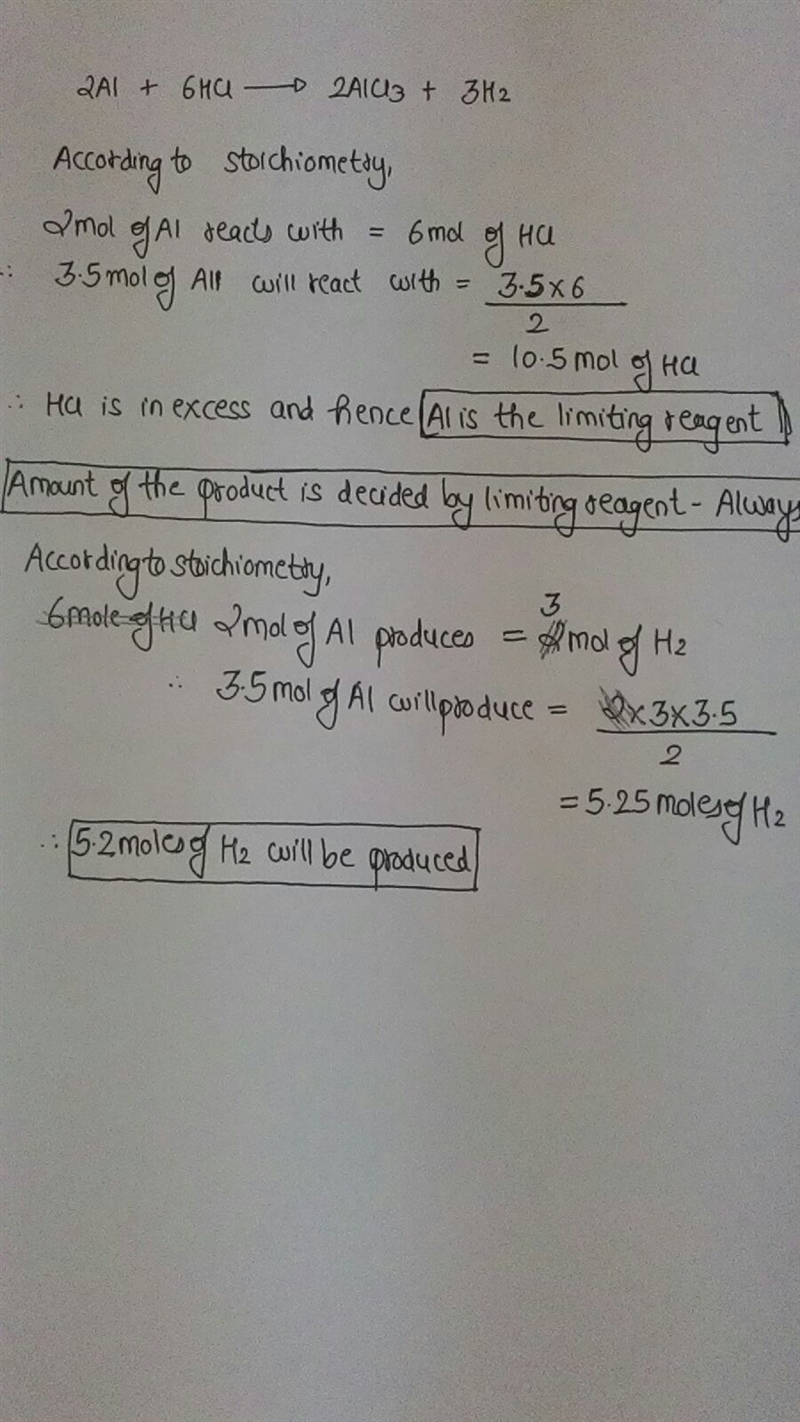 2Al + 6HCl → 2AlCl3 + 3H2
According to stoichiometry,
2mol of Al reacts with = 6mol of HCl
∴ 3.5mol of All will react with = 3.5×6
2
= 10.5mol of HCl
∴ HCl is in excess and hence Al is the limiting reagent
Amount of the product is decided by limiting reagent - Always
According to stoichiometry,
6mole of HCl 2mol of Al produces = 3 mol of H2
∴ 3.5mol of Al will produce = ×3×3.5
2
= 5.25 moles of H2
∴ 5.2moles of H2 will be produced